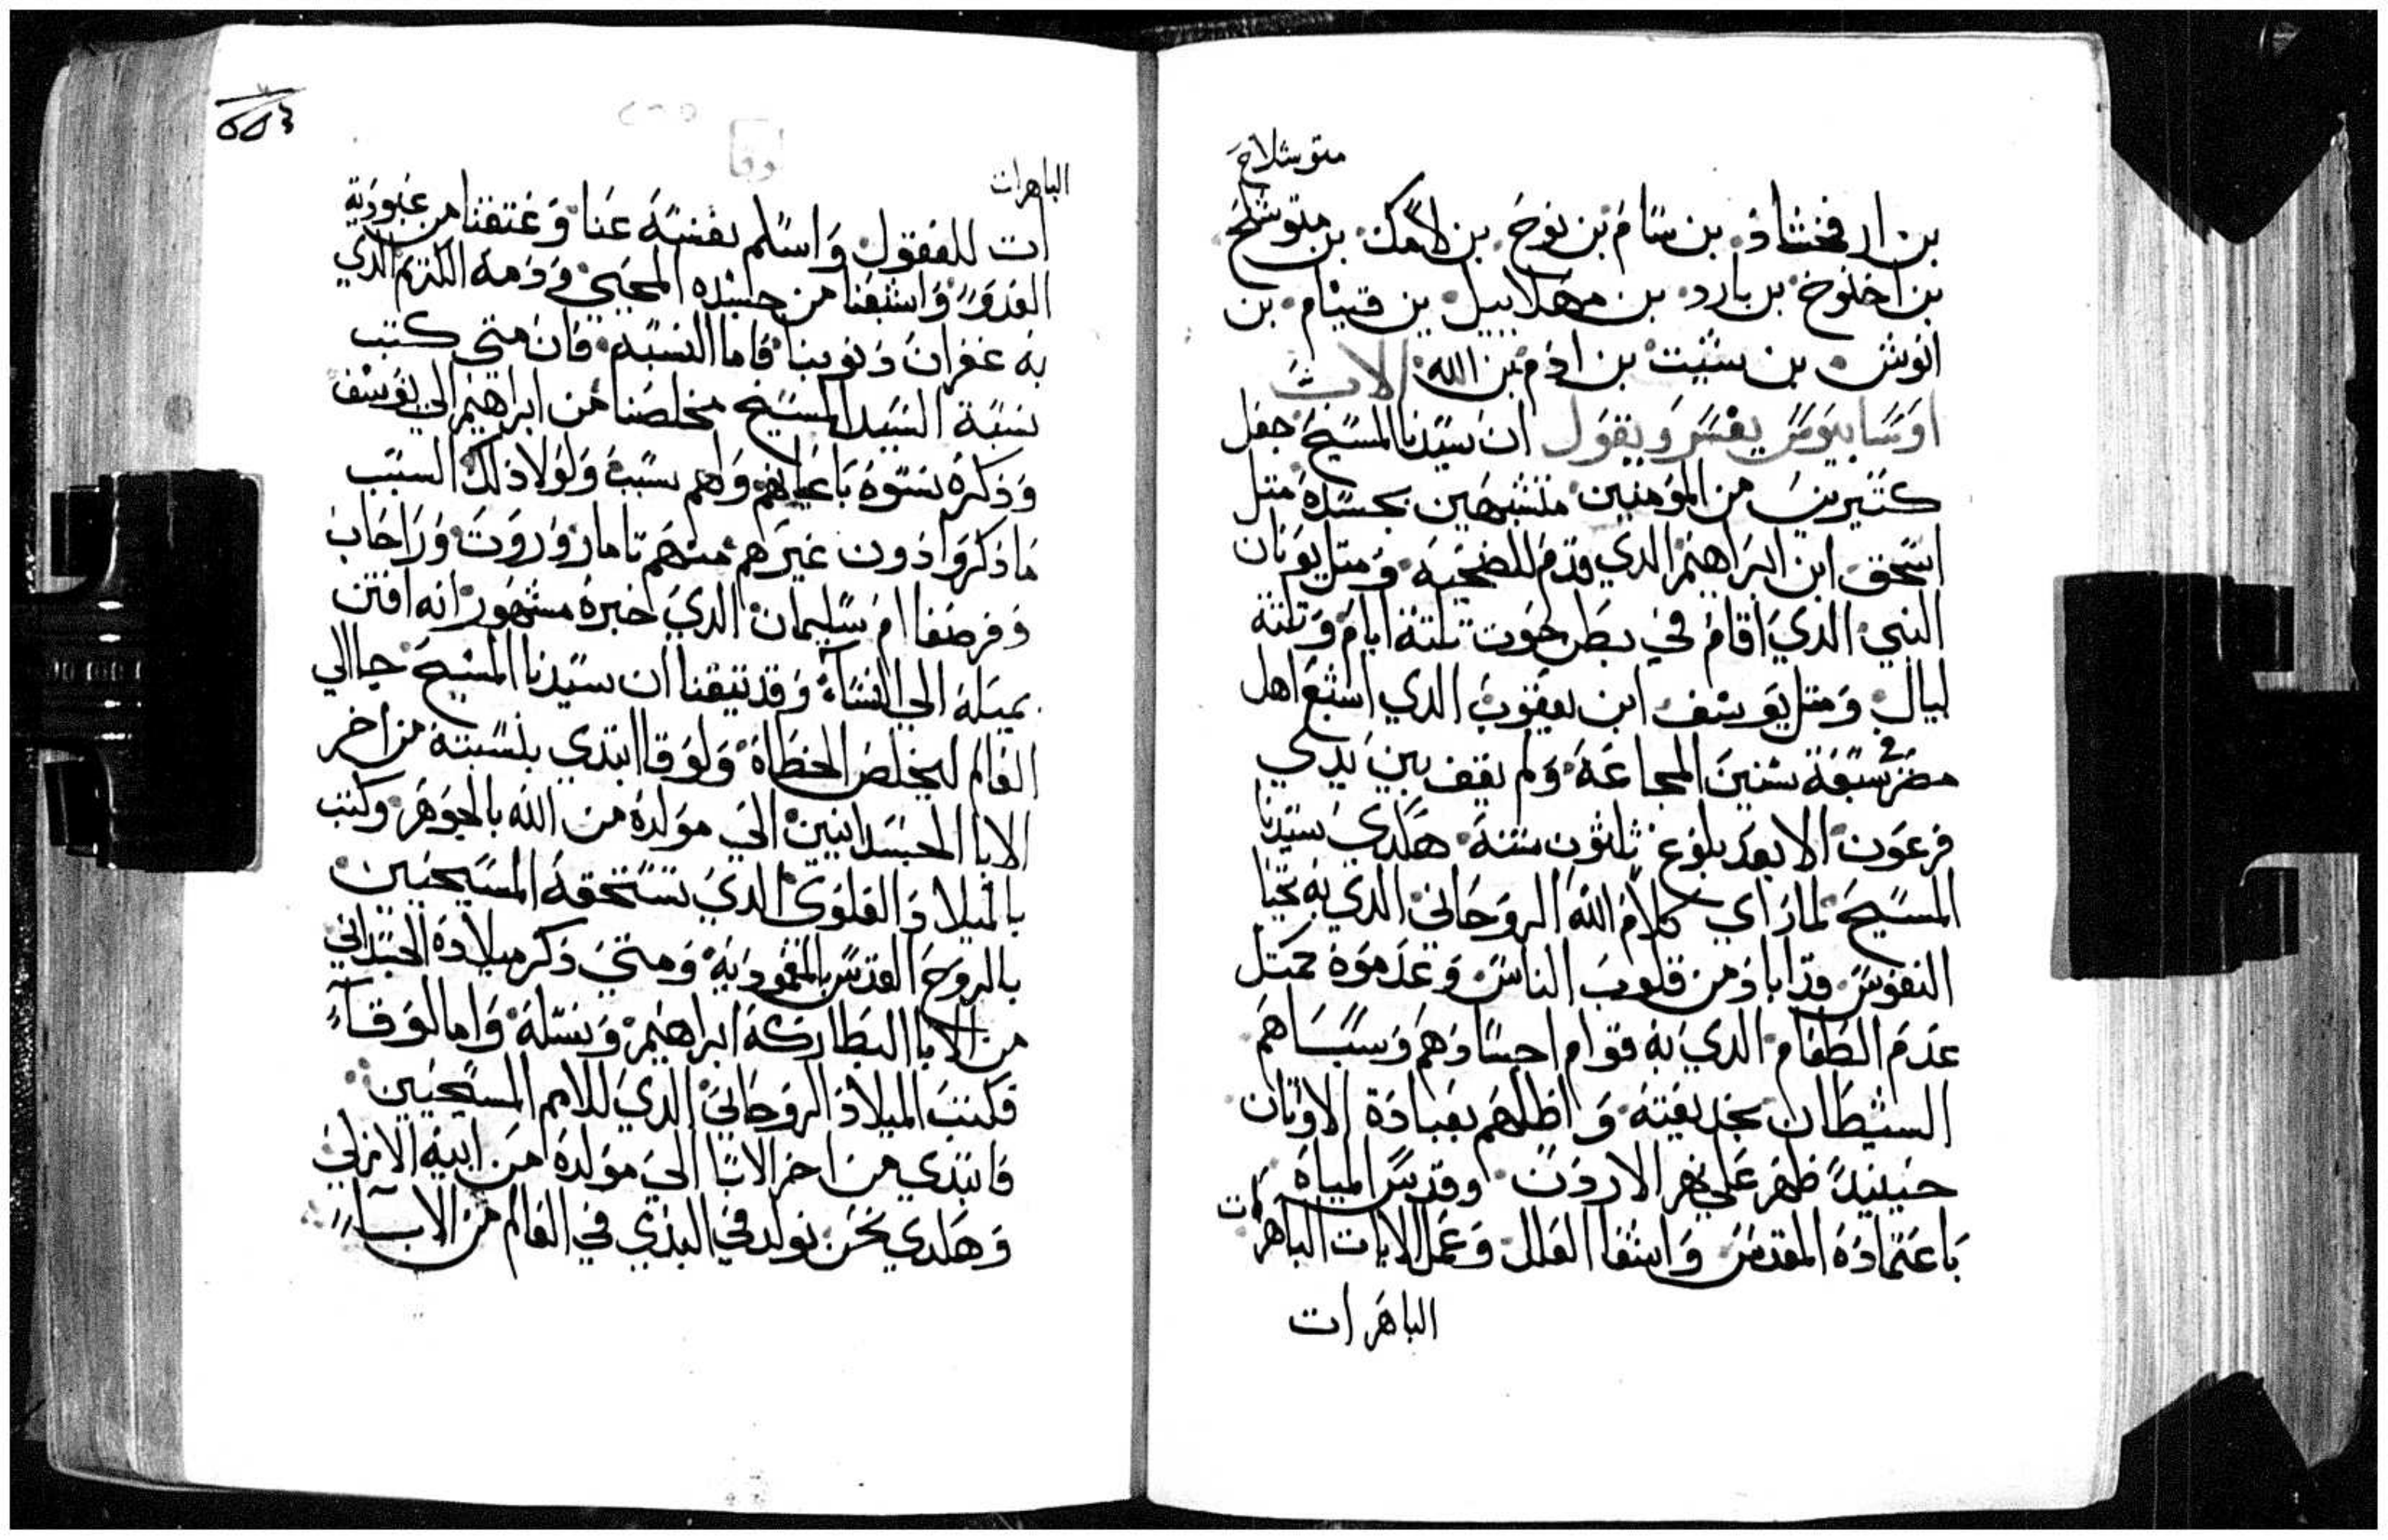 متوشلاح
بن ارفخشاد بن سام بن نوح بن لامك بن متوشلح
بن اخنوخ بن يارد بن مهلاييل بن قينام بن
انوش بن شيت بن ادم بن الله الاب
اوسابيوس يفسر ويقول ان سيدنا المسيح جعل
كتيرين من المومنين متشبهين بجسده متل
اسحق ابن ابراهيم الدي قدم للضحيه ومتل يونان
النبي الدي اقام في بطن حوت تلتة ايام وتلتة
ليال ومتل يوسف ابن يعقوب الدي اشبع اهل
مصر سبعة سنين المجاعة ولم يقف بين يدي
فرعون الا بعد بلوغ ثلثون سنة هكدي سيدنا
المسيح لما راي كلام الله الروحاني الدي به تحيا
النفوس قد اباد من قلوب الناس وعدموه كمتل
عدم الطعام الدي به قوام اجسادهم وسباهم
الشيطان بخديعته واظلهم بعبادة الاوتان
حينيدً ظهر على نهر الاردن وقدس المياه
باعتماده المقدس واشفا العلل وعمل الايات الباهرات
الباهرات
الباهرات
ات للعقول واسلم نفسه عنا وعتقنا من عبودية
العدو واشبعنا من جسده المحيي ودمه الكريم الدي
به غفران دنوبنا فاما النسبة فان متي كتب
نسبة السيد المسيح مخلصنا من ابراهيم الي يوسف
وذكره نسوه باعيانهم ولهم سبب ولولا ذلك السبب
ما ذكروا دون غيرهم منهم تامار وروت وراحاب
وفرصفا ام سليمان الدي خبره مشهور انه افتن
بميله الي النساء وقد تيقنا ان سيدنا المسيح جا الي
العالم ليخلص الخطاة ولوقا ابتدي بنسبته من اخر
الابا الجسدانيين الي مولده من الله بالجوهر وكتب
بالميلاد العلوي الدي تستحقه المسيحيين
بالروح القدس بالمعموديه ومتي ذكر ميلاده الجسداني
من الابا البطاركة ابراهيم ونسله واما لوقا
فكتب الميلاد الروحاني الدي للامم المسيحيين
فابتدي من اخر الابا الي مولده من ابيه الازلي
وهكدي نحن نولد في البدي في العالم من الابآ